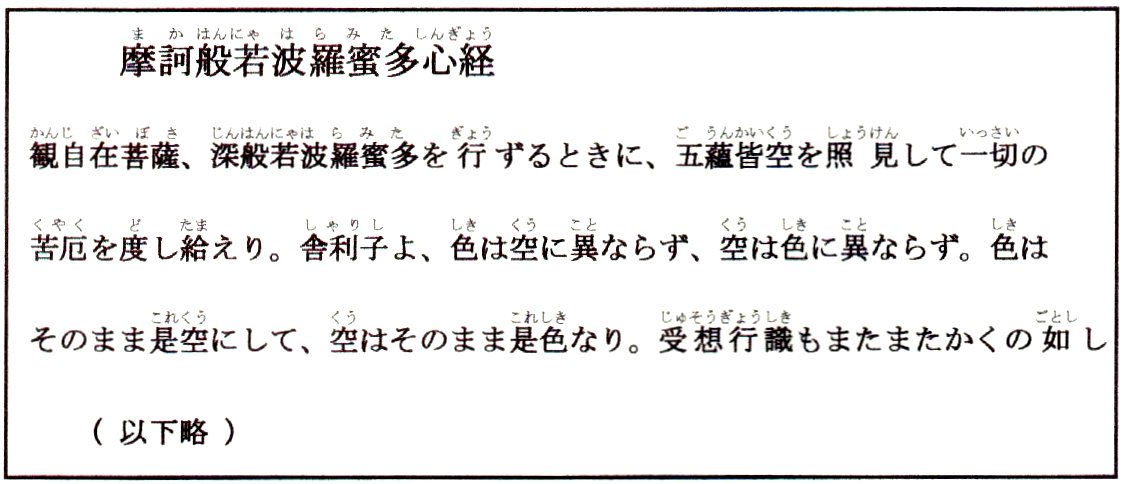 まかはんにゃはらみたしんぎょう
摩訶般若波羅蜜多心経
かんじざいぼさ じんはんにゃはらみた ぎょう ごうんかいくう しょうけん いっさい
観自在菩薩、深般若波羅蜜多を行ずるときに、五蘊皆空を照見して一切の
くやく ど たま しゃりし しき くう こと くう しき こと しき
苦厄を度し給えり。舎利子よ、色は空に異ならず、空は色に異ならず。色は
これくう くう これしき じゅそうぎょうしき ごとし
そのまま是空にして、空はそのまま是色なり。受想行識もまたまたかくの如し
(以下略)